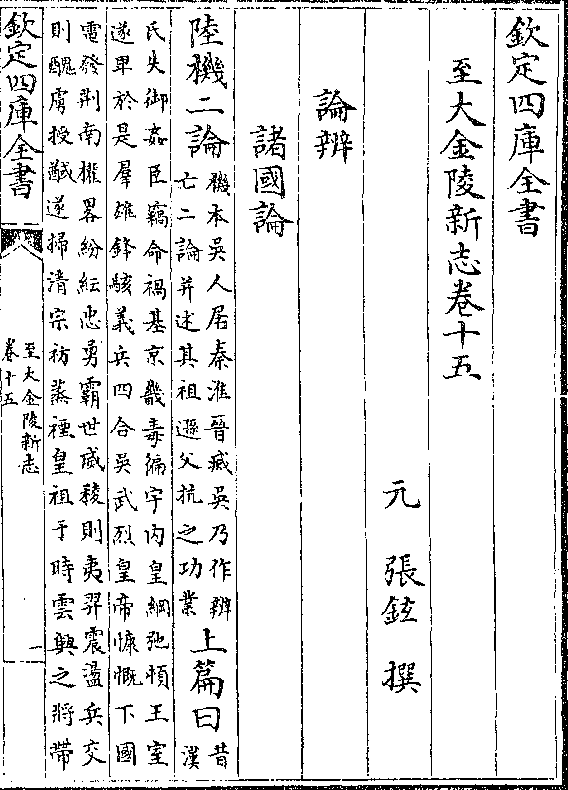 欽定四庫全書
至大金陵新志卷十五
元 張鉉 撰
論辨
諸國論
陸機二論
機本吳人居秦淮晉滅吳乃作辨
亡二論并述其祖遜父抗之功業
上篇曰
昔
漢
氏失御姦臣竊命禍基京畿毒徧宇内皇綱弛頓王室
遂卑於是羣雄鋒駭義兵四合吳武烈皇帝慷慨下國
電發荆南權畧紛紜忠勇霸世威稜則夷羿震盪兵交
則醜虜授馘遂掃清宗祊蒸禋皇祖于時雲興之將帶
欽定四庫全書
至大金陵新志
卷十五
一